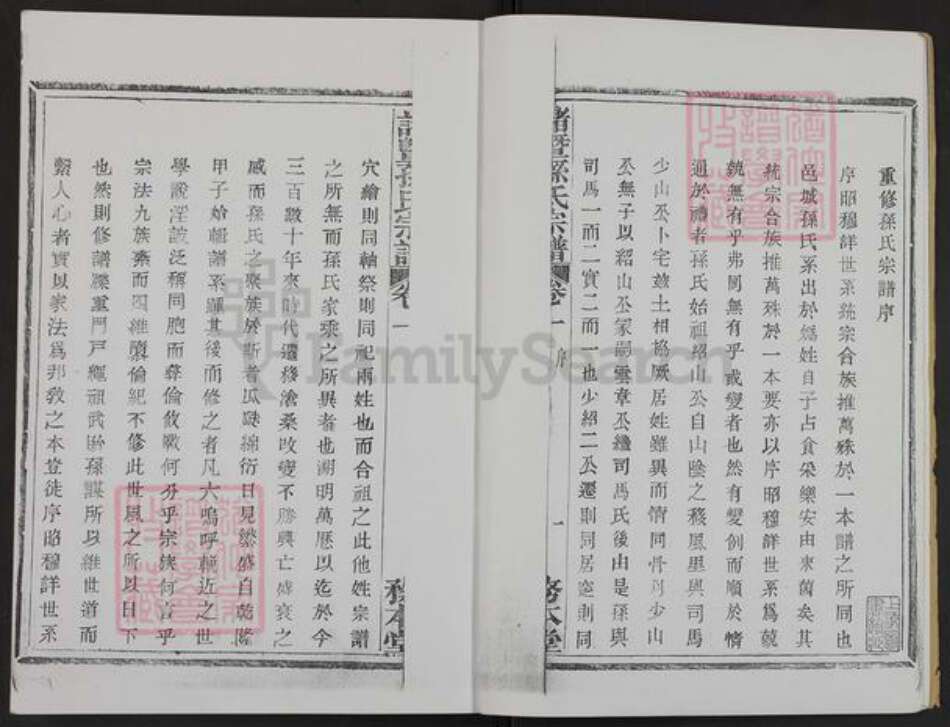 重修孫氏宗譜序
序昭穆詳世系統宗合族推萬殊於一本譜之所同也
邑城孫氏系出於媯姓自子占食采樂安由來舊矣其
統宗合族推萬殊於一本要亦以序昭穆詳世系為兢
兢無有乎弗同無有乎或變者也然有變例而順於情
通於禮者孫氏始祖紹山公自山陰之移風里與司馬
少山公卜宅茲土相協厥居姓雖異而情同骨肉少山
公無子以紹山公冢嗣雲章公繼司馬氏後由是孫與
司馬一而二實二而一也少紹二公遷則同居窆則同
諸暨孫氏宗譜
卷一
序
一
務本堂
諸暨孫氏宗譜
卷一
務本堂
穴繪則同軸祭則同祀兩姓也而合祖之此他姓宗譜
之所無而孫氏家乘之所異者也溯明萬厯以迄於今
三百數十年來時代遷移滄桑改變不勝興亡盛衰之
感而孫氏之聚族於斯者瓜瓞綿衍日見繁盛自乾隆
甲子始輯譜系踵其後而修之者凡六嗚呼輓近之世
學說淫詖泛稱同胞而彝倫攸斁何分乎宗族何言乎
宗法九族棄而四維隳倫紀不修此世風之所以日下
也然則修譜牒重門戶繩祖武貽孫謀所以維世道而
繫人心者實以家法為邦教之本豈徒序昭穆詳世系
FamilySearch